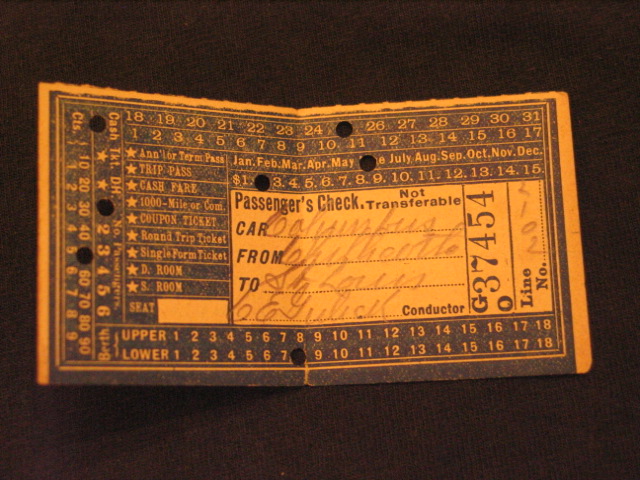 18 19 20 21 22 23 24 26 27 28 29 30 31
1 2 3 4 5 6 7 8 9 10 11 12 13 14 15 16 17
Cts.
10 20 30 40 60 70 80 90
Cash Tkt DH
No. Passengers
2 3 4 5 6
Berth
★ Ann'l or Term Pass
★ TRIP PASS
★ CASH FARE
★ 1000-Mile or Com.
★ COUPON TICKET
★ Round Trip Ticket
★ Single Form Ticket
★ D. ROOM
★ S. ROOM
SEAT
Jan. Feb. Mar. Apr. May July Aug. Sep. Oct. Nov. Dec.
$1. 3. 4. 5. 6. 7. 8. 9. 10. 11. 12. 13. 14. 15.
Passenger's Check. Not Transferable
CAR Columbus
FROM Chillicothe
TO St Louis
Conductor
G 37454
O
Line No.
UPPER 1 2 3 4 5 6 7 8 9 10 11 12 13 14 15 16 17 18
LOWER 1 2 3 4 5 6 7 9 10 11 12 13 14 15 16 17 18